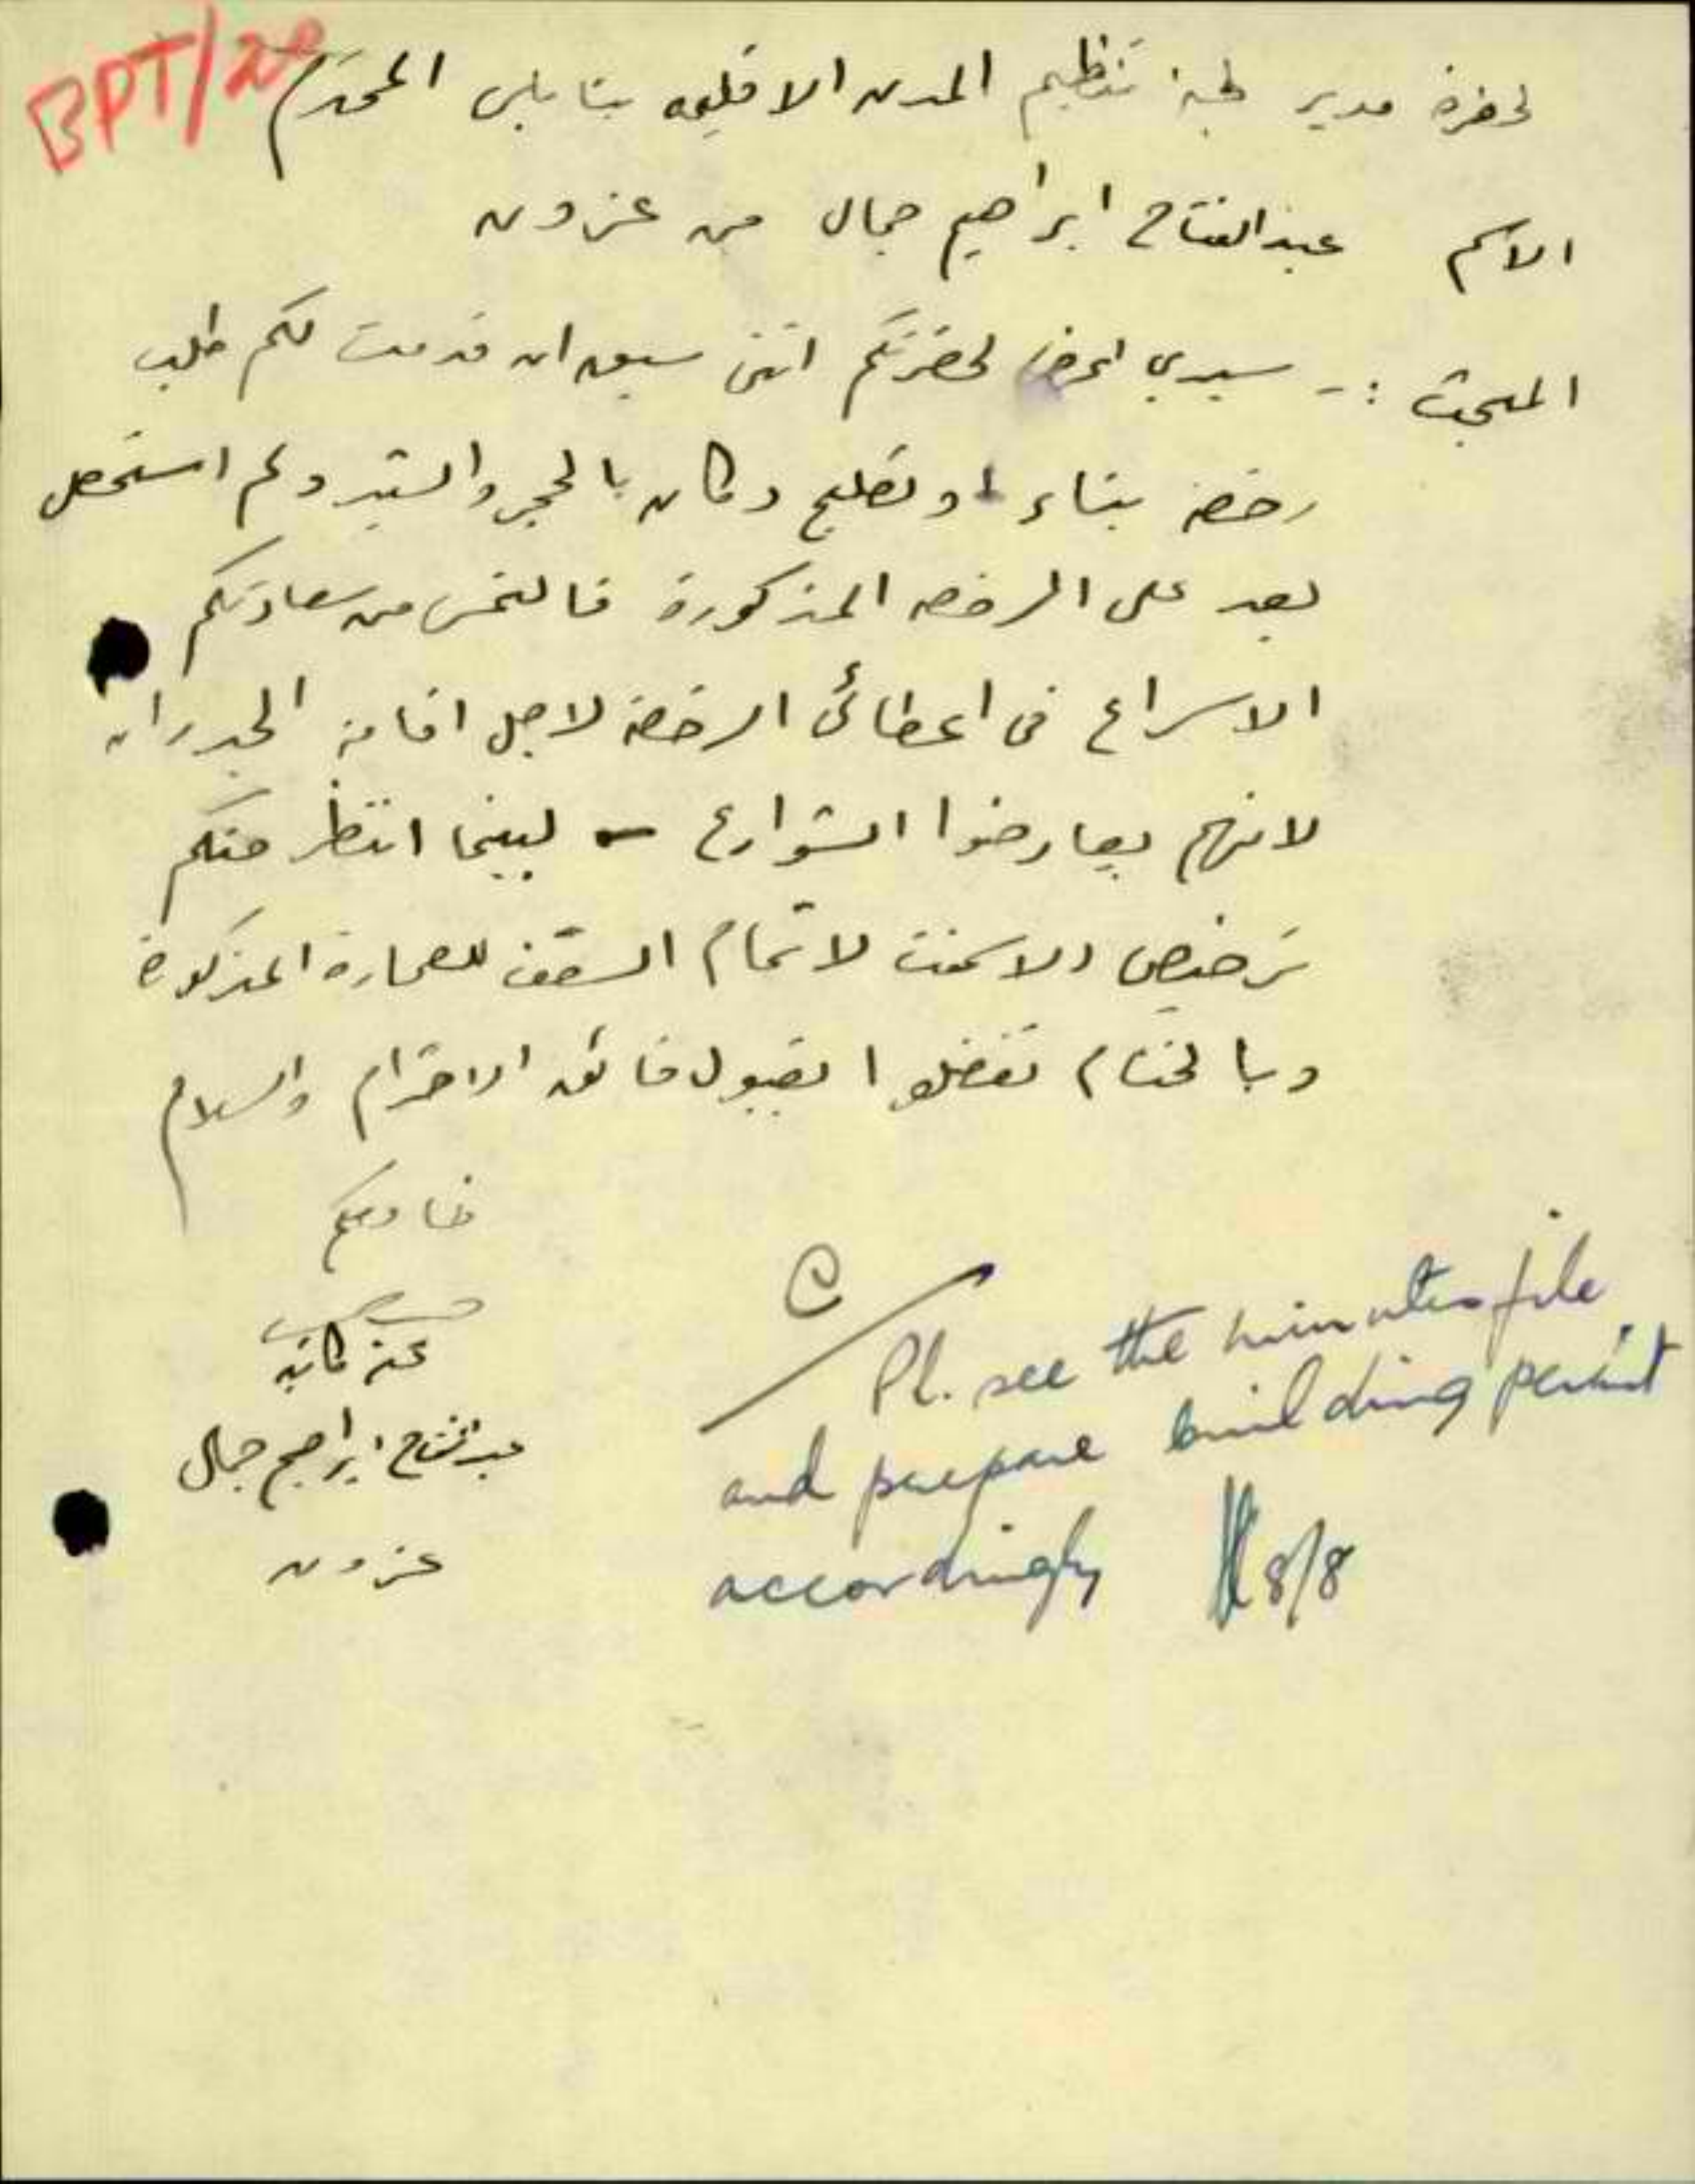 BPT/20
لحضرة مدير لجنة تنظيم المدن الاقليمه بنابلس المحترم
الاسم عبدالفتاح ابراهيم جمال من عزون
المبحث :- سيدي اعرض لحضرتكم انني سبق ان قدمت لكم طلب
رخصه بناء او تصليح دكان بالحجر والشيد ولم استحصل
بعد على الرخصه المذكورة فالتمس من سعادتكم
الاسراع في اعطائي الرخصة لاجل اقامة الجدران
لانهم يعارضوا الشوارع - لبينما انتظر منكم
ترخيص الاسمنت لاتمام السقف للعمارة المذكورة
وبالختام تفضلوا بقبول فائق الاحترام والسلام
خادمكم
عنه كاتبه
عبدالفتاح ابراهيم جمال
عزون
C/
Pl. see the minutes file
and prepare building permit
accordingly 8/8